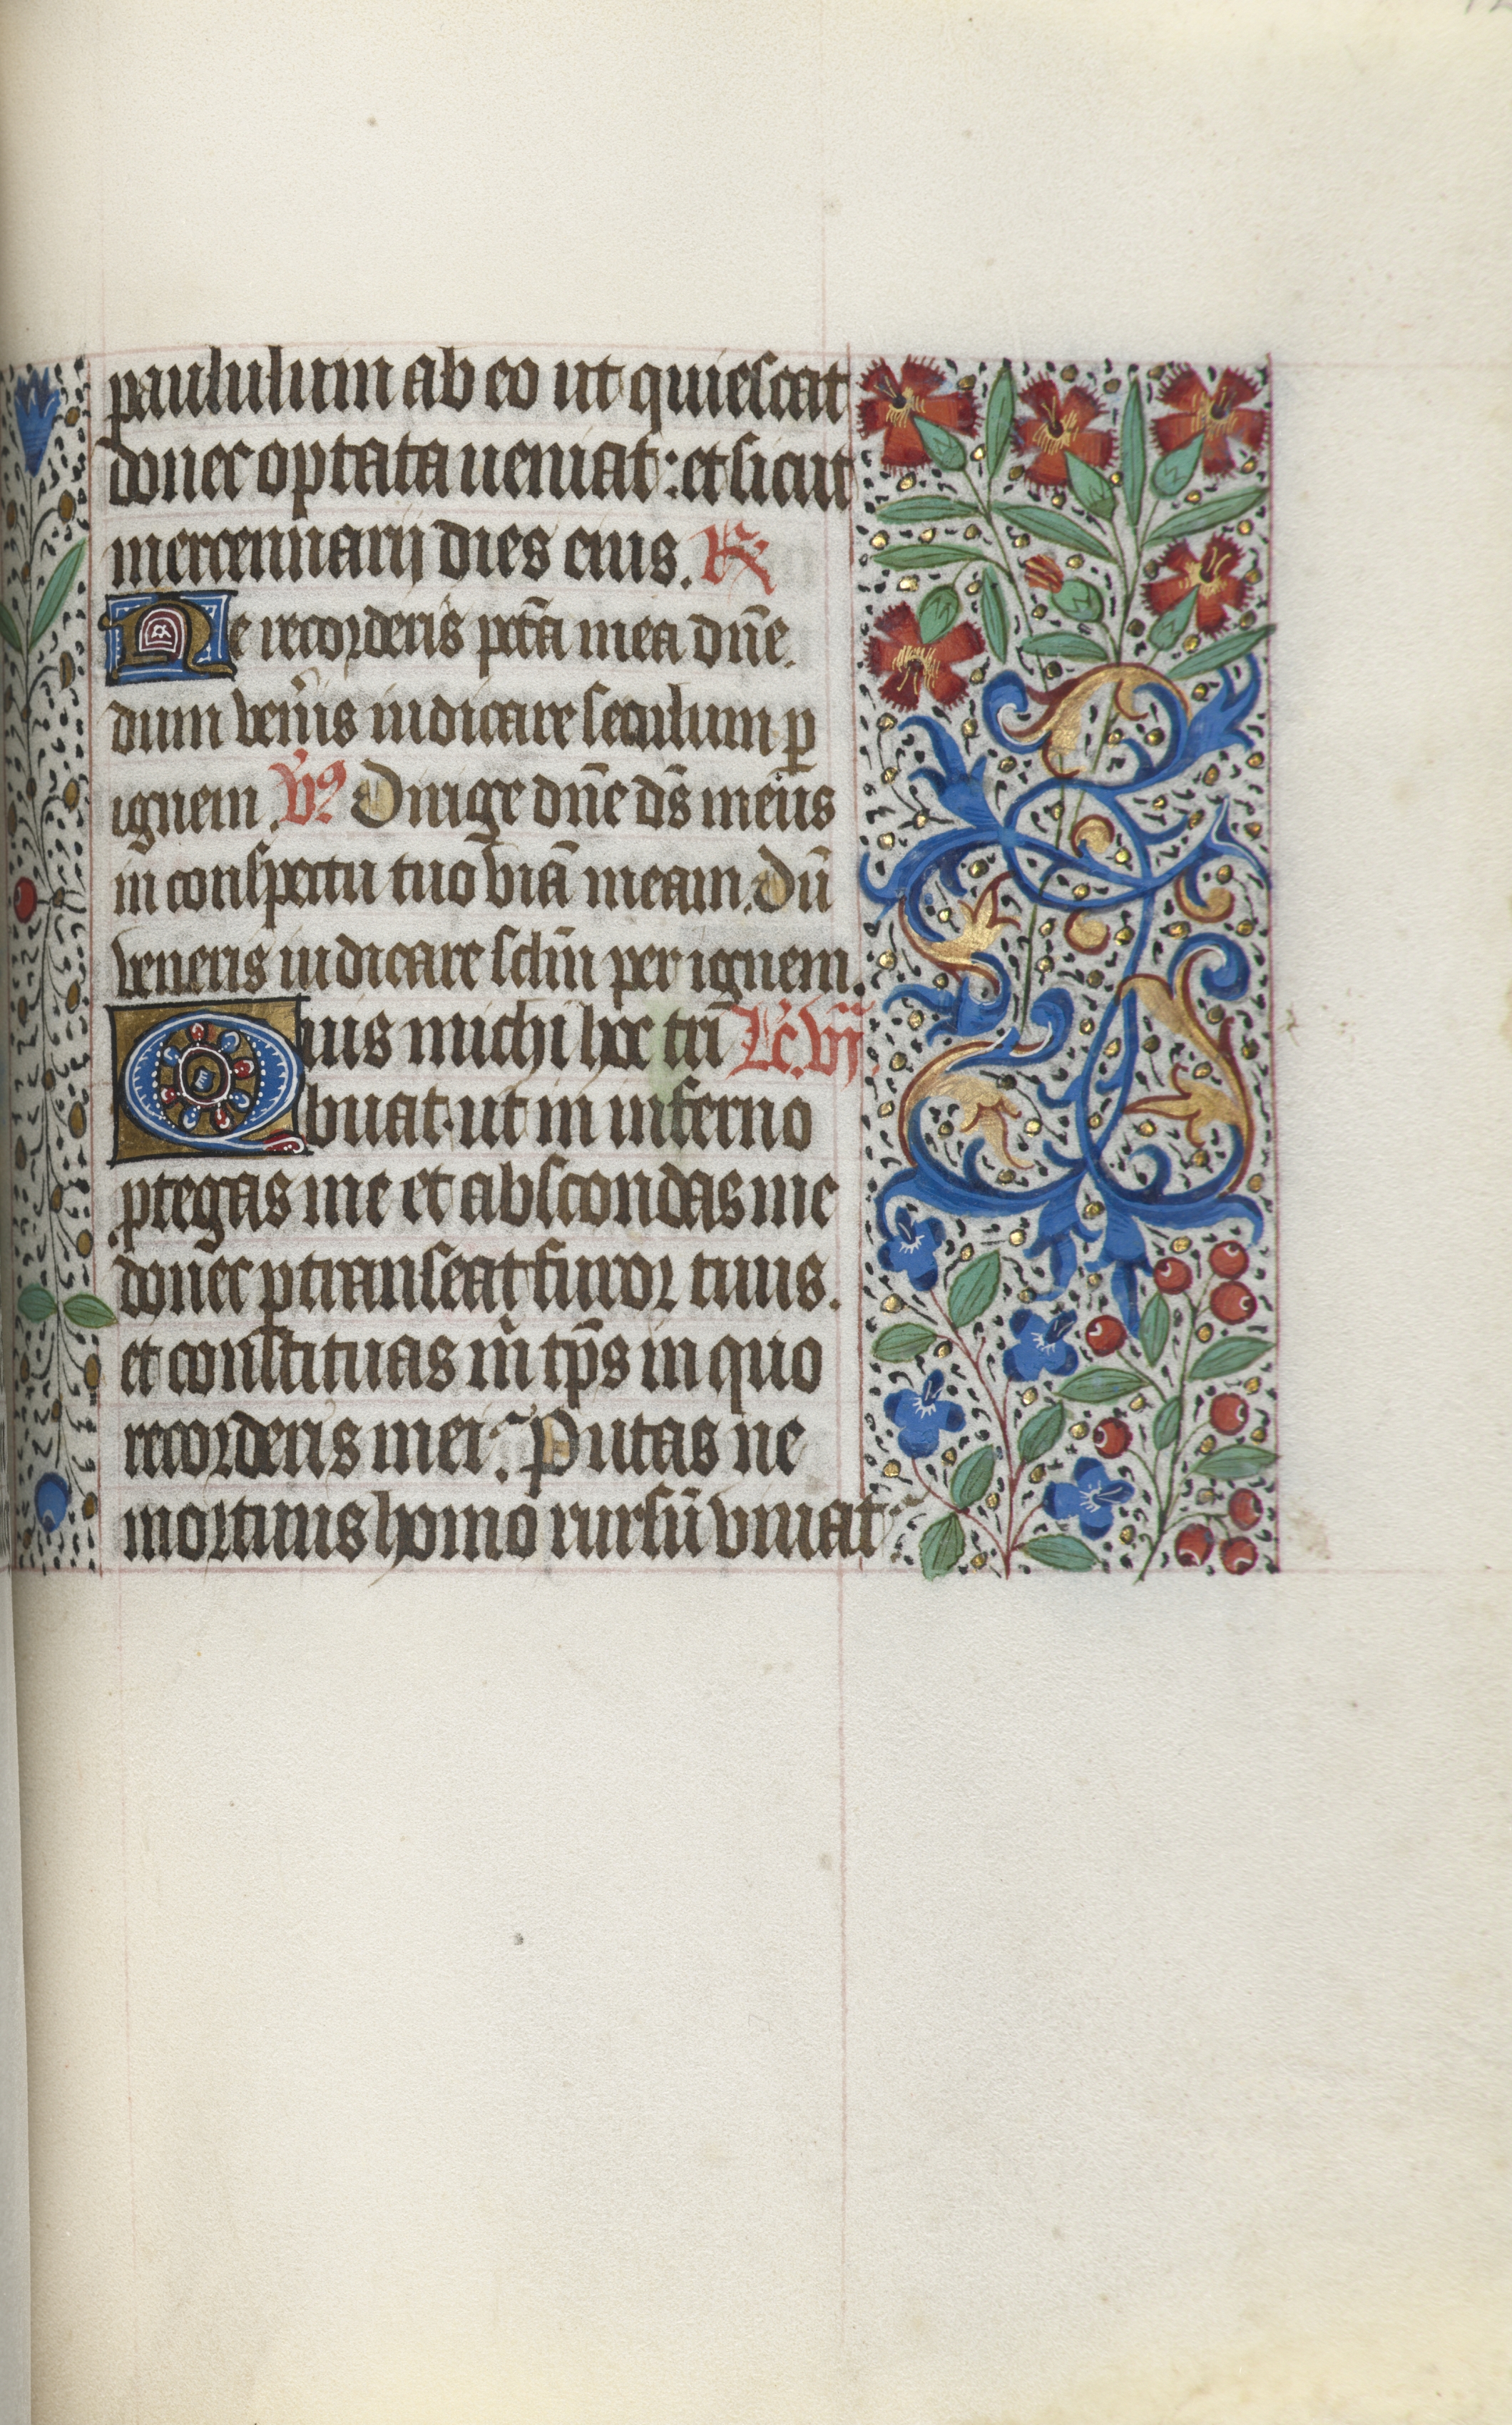 paululum ab eo ut quiescat
donec optata ueniat : et sicut
mercennarij dies eius. ℟
Ne recorderis pctā mea dn̄e.
dum ven̄is iudicare seculum ꝑ
ignem. v̄s Dirige dn̄e ds̄ meus
in conspectu tuo viā meam. Dū
veneris iudicare sclm̄ per ignem.
Quis michi hoc tri Lc̄. vij.
buat ut in inferno
ꝓtegas me et abscondas me
donec ꝑtranseat furor tuus.
et constituas m̄ tp̄s in quo
recorderis mei. Putas ne
mortuus homo rursū viuat